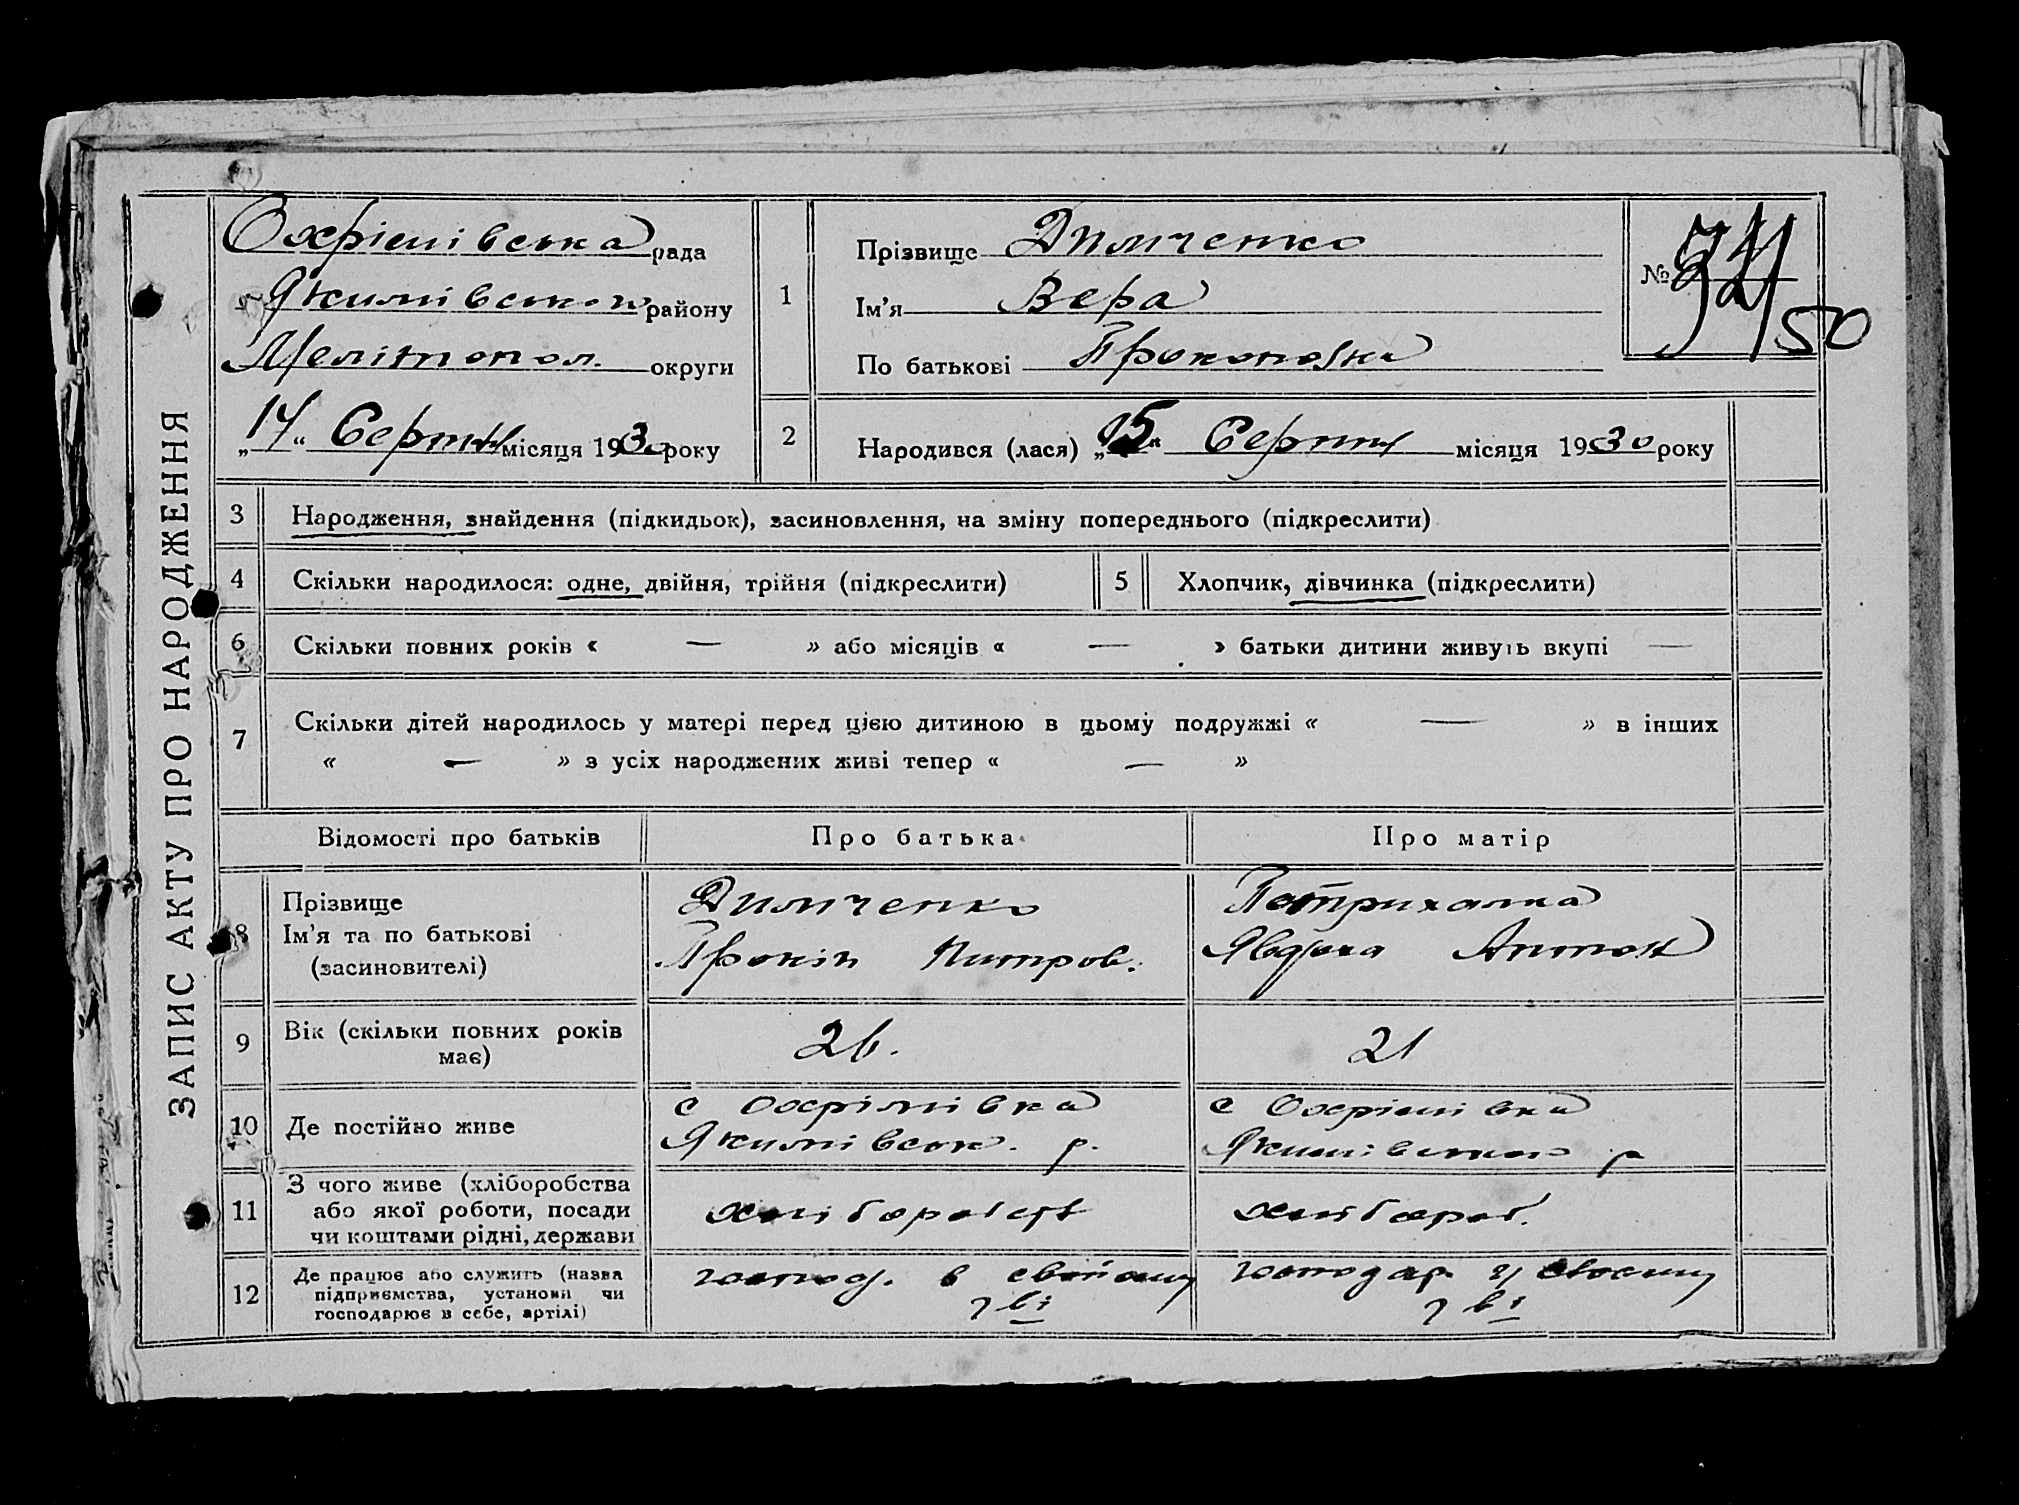 ЗАПИС АКТУ ПРО НАРОДЖЕННЯ
Охрімівська рада
Якимівськой району
Мелітопол. округи
„14“ Серпня місяця 1930 року
1
Прізвище Димченко
Ім'я Вера
По батькові Прокоповна
№ 50
2
Народився (лася) „5“ Серпня місяця 1930 року
3 Народження, знайдення (підкидьок), засиновлення, на зміну попереднього (підкреслити)
4 Скільки народилося: одне, двійня, трійня (підкреслити) 5 Хлопчик, дівчинка (підкреслити)
6 Скільки повних років « — » або місяців « — » батьки дитини живуть вкупі —
7 Скільки дітей народилось у матері перед цією дитиною в цьому подружжі « — » в інших
« — » з усіх народжених живі тепер « — »
Відомості про батьків Про батька Про матір
8 Прізвище
Ім'я та по батькові
(засиновителі)
Димченко
Прокіп Питров.
Явдоха Антон
9 Вік (скільки повних років
має)
26.
21
10 Де постійно живе
с Охрімівка
Якимівськ. р.
с Охрімівка
Якимівського р
11 З чого живе (хліборобства
або якої роботи, посади
чи коштами рідні, держави
хліборобств
хлібороб.
12 Де працює або служить (назва
підприємства, установи чи
господарює в себе, артілі)
господ. в свойому
господар. у своєму